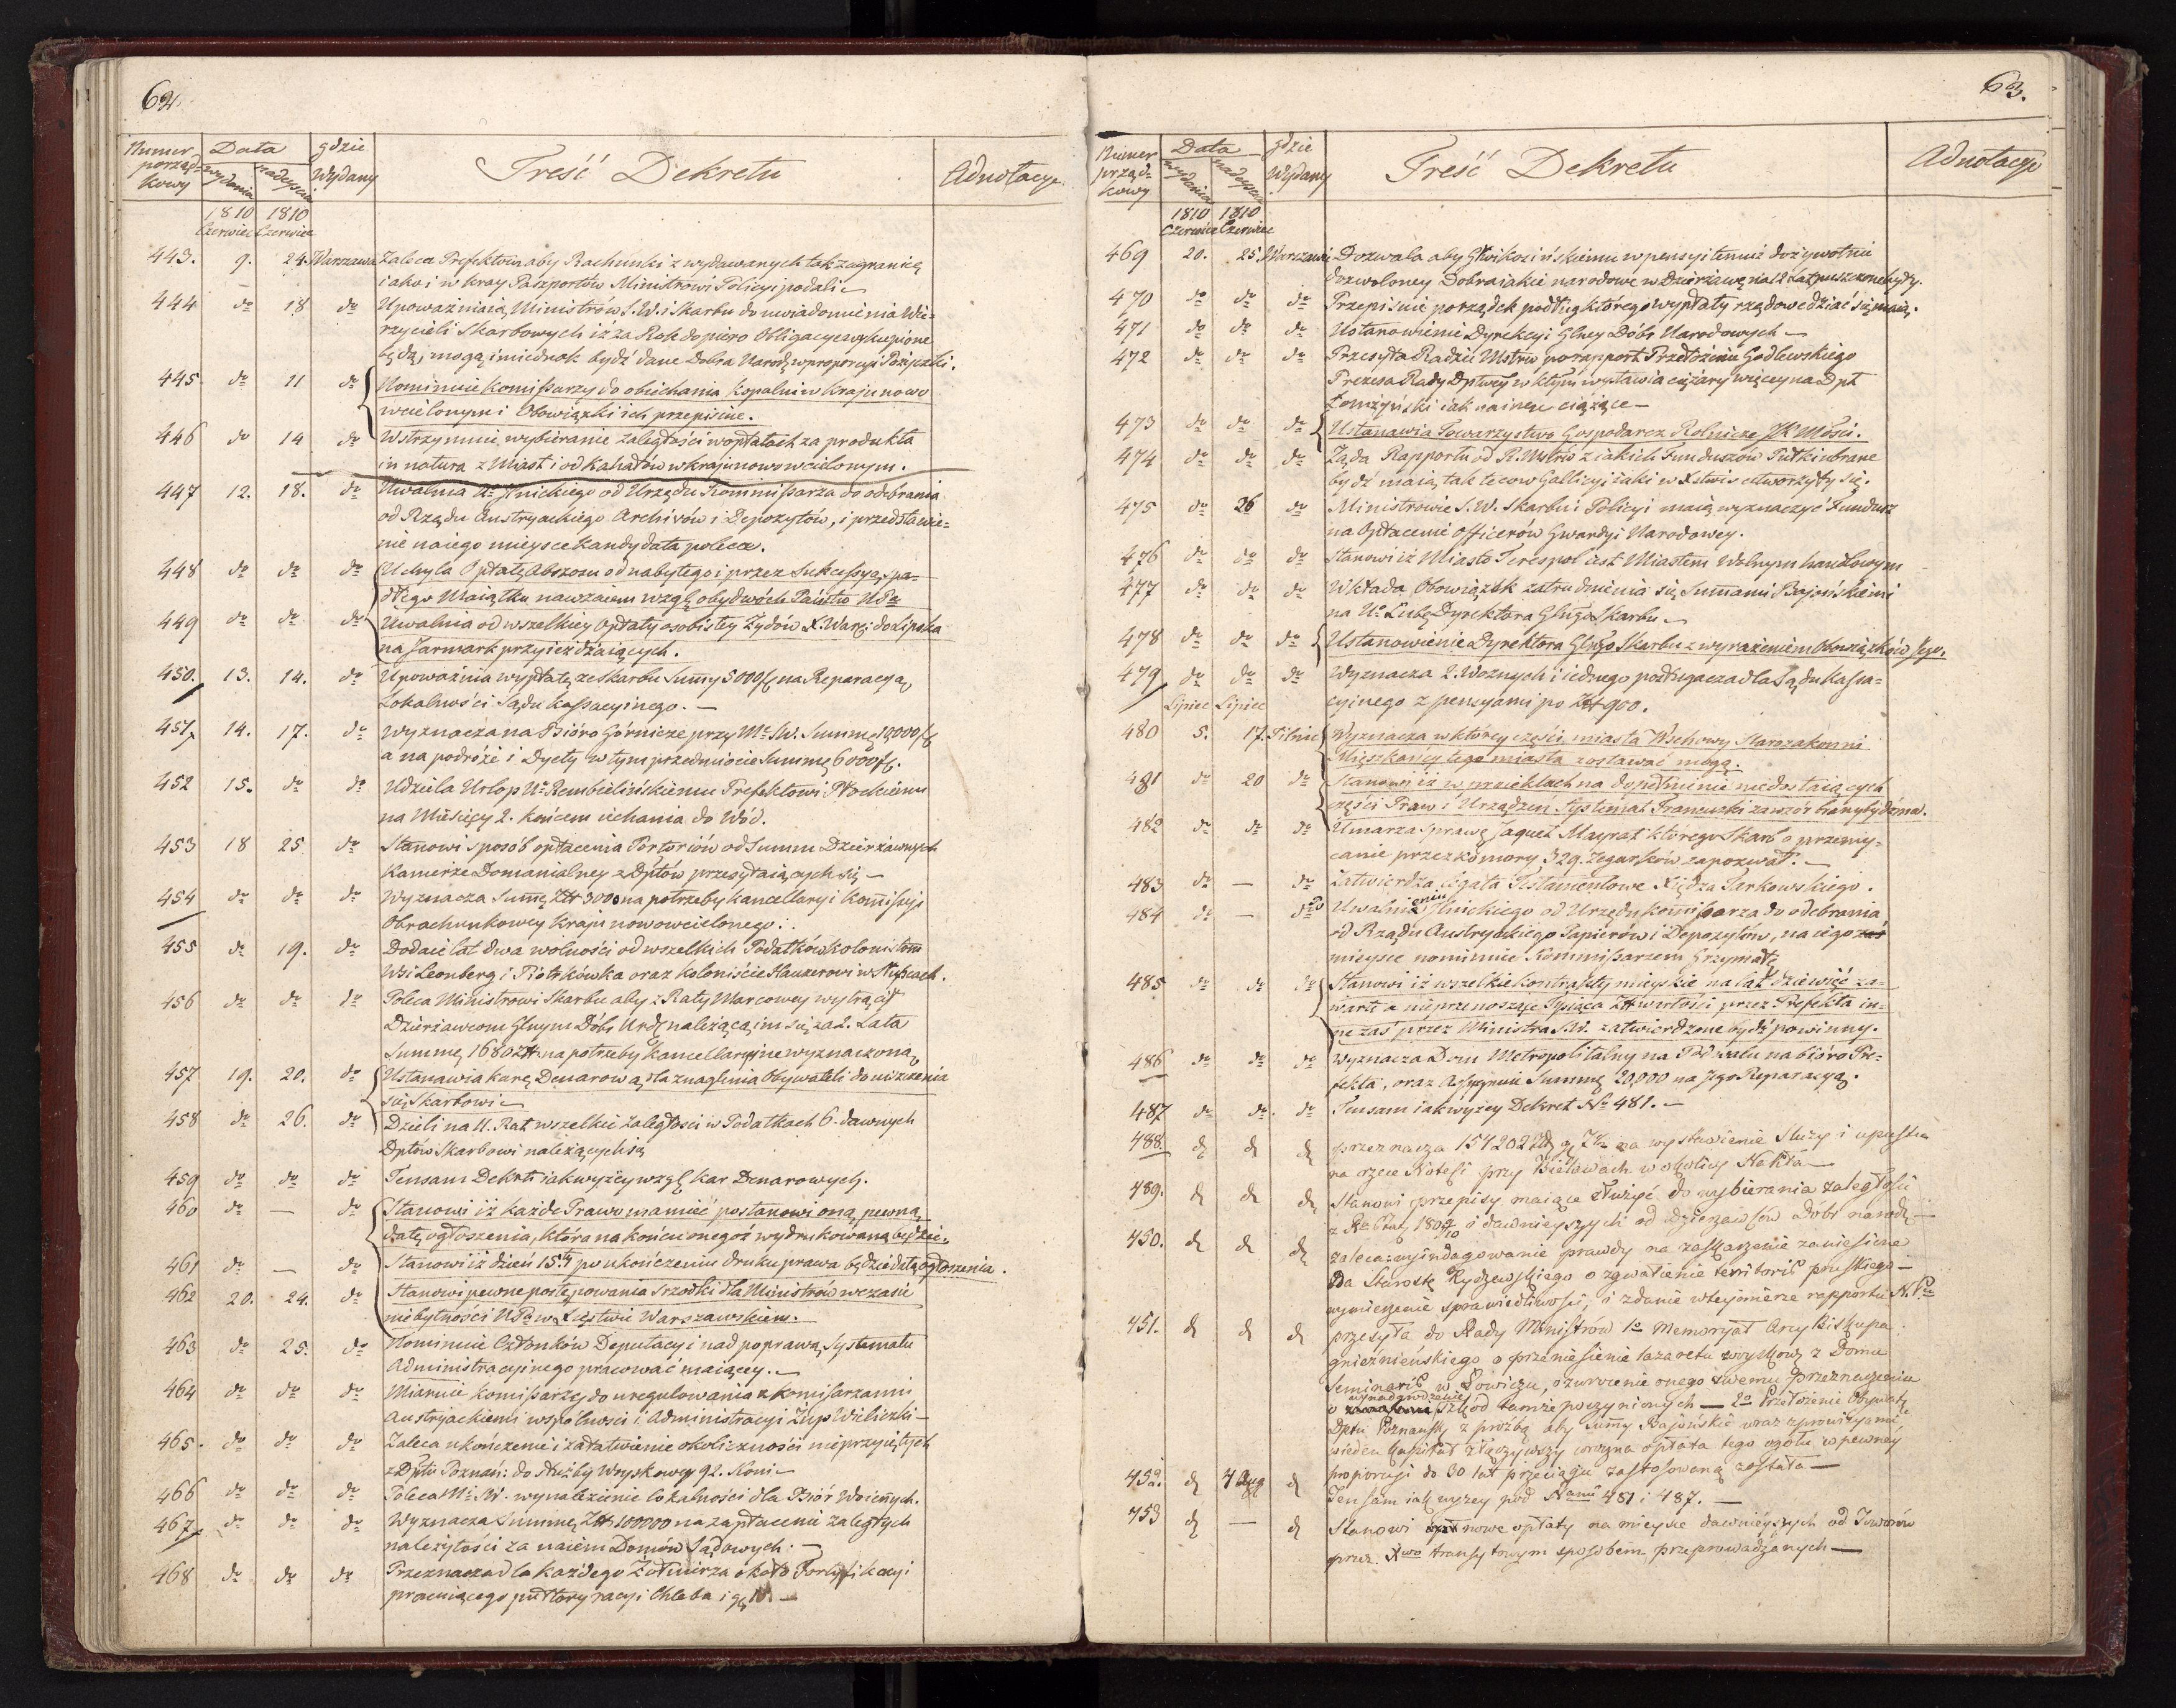 62.
Numer porząd-kowy Data wydania nadeyścia gdzie Wydany Treść Dekretu Adnotacye
1810 1810
Czerwiec Czerwiec
443. 9. 24. Warszawa Zaleca Prefektom aby Rachunki z wydawanych tak zagranicę
iako i w kray Paszportów Ministrowi Policyi podali
444 do 18 do Upoważniaią Ministrów S.W. i Skarbu do uwiadomienia Wie-
rzycieli Skarbowych iż za Rok dopiero Obligacye wykupione
będą, mogą im iednak bydź dane Dobra Narod: w proporcyi Pożyczki.
445 do 11 do Nominuie Komissarzy do obiechania Kopalni w Kraju nowo
wcielonym i Obowiązki ich przepisuie.
446 do 14 do Wstrzymuie wybieranie zaległości w opłatach za produkta
in natura z Miast i od Kahałów w kraju nowo wcielonym.
447 12. 18. do Uwalnia Ur Ilnickiego od Urzędu Kommissarza do odebrania
od Rządu Austryackiego Archivów i Depozytów, i przedstawie-
nie na iego mieysce Kandydata poleca.
448 do do do Uchyla Opłatę Abszosu od nabytego i przez Sukcessyą spa-
dłego Maiątku nawzaiem wzglę: obydwóch Państw NPa
449 do do do Uwalnia od wszelkiey Opłaty osobistey Żydów X. Warsz: do Lipska
na Jarmark przyieżdżaiących.
450. 13. 14. do Upoważnia wypłatę ze Skarbu Summy 5000 f na Reparacyą
Lokalności Sądu Kassacyinego. —
451 14. 17. do Wyznacza na Bióro Górnicze przy Mr S.W. Summę 12000 f
a na podróże i Dyety w tym przedmiocie Summę 6000 f.
452 15. do do Udziela Urlop Ur Rembielińskiemu Prefektowi Płockiemu
na Miesięcy 2. końcem iechania do Wód.
453 18 25 do Stanowi sposób opłacenia Portoriów od Summ Dzierżawnych
Kamerze Domanialney z Dptów przesyłaiących się —
454 do do do Wyznacza Summę Zł 3000 na potrzeby Kancellaryi Kommissyi
Obrachunkowey Kraju nowowcielonego.
455 do 19. do Dodaie lat dwa wolności od wszelkich Podatków kolonistom
Wsi Leonberg i Piotrkówka oraz koloniście Hauzerowi w Słupcach.
456 do do do Poleca Ministrowi Skarbu aby z Raty Marcowey wytrącił
Dzierżawcom Głnym Dóbr Nrod: należącą im się za 2. Lata
Summę 1680 Zł na potrzeby Kancellaryine wyznaczoną
457 19. 20. do Ustanawia karę Denarową dla znaglenia Obywateli do uiszczenia
się Skarbowi
458 do 26. do Dzieli na 11. Rat wszelkie Zaległości w Podatkach 6. dawnych
Dptów Skarbowi należących się
459 do do do Tensam Dekret iak wyżey wzglę: kar Denarowych.
460 do — do Stanowi iż każde Prawo ma mieć postanowioną pewną
datę ogłoszenia, która na końcu onegoż wydrukowaną będzie.
461 do — do Stanowi iż dzień 15.ty po ukończeniu druku prawa będzie datą ogłoszenia.
462 20. 24. do Stanowi pewne postępowania Srzodki dla Ministrów w czasie
niebytności NPa w Xięstwie Warszawskiem.
463 do 25. do Nominuie Członków Deputacyi nad poprawą Systematu
Administracyinego pracować maiącey.
464 do do do Mianuie Komissarzy do uregulowania z Komissarzami
Austryackiemi wspólności i Administracyi Żup Wieliczki —
465. do do do Zaleca ukończenie i załatwienie okoliczności nieprzyiętych
z Dptu Poznań: do służby Woyskowey 92. Koni
466 do do do Poleca Mr S.W. wynalezienie lokalności dla Biór Woiennych.
467 do do do Wyznacza Summę Zł 100000 na zapłacenie zaległych
należytości za naiem Domów Sądowych. —
468 do do do Przeznacza dla każdego Żołnierza około Fortyfikacyi
pracuiącego półtory racyi Chleba i gr 10. —
63.
Numer porząd-kowy Data wydania nadeyścia gdzie Wydany Treść Dekretu Adnotacye
1810 1810
Czerwiec Czerwiec
469 20. 25. Warszawa Dozwala aby Gł. w pensyi temuż dożywotniu
dozwoloney Dobra iakie narodowe w Dzierżawę na 12 Lat puszczone były.
470 do do do Przepisuie porządek podług którego wypłaty rządowe dziać się maią.
471 do do do Ustanowienie Dyrekcyi Głney Dóbr Narodowych —
472 do do do Przesyła Radzie Mstrw po rapport Przełożenie Godlewskiego
Prezesa Rady Dptwey w którym wystawia ciężary więcey na Dpt
Łomżyński iak na inne ciążące —
473 do do do Ustanawia Towarzystwo Gospodarcz Rolnicze JKMości.
474 do do do Żąda Rapportu od R. Mstrw z iakich Funduszów Pułki ubrane
bydź maią, tak te co w Gallicyi iaki w Xstwie utworzyły się.
475 do 26 do Ministrowie S.W. Skarbu i Policyi maią wyznaczyć Fundusz
na Opłacenie Officerów Gwardyi Narodowey.
476 do do do Stanowi iż Miasto Terespol iest Miastem Wolnym handlowym
477 do do do Wkłada Obowiązek zatrudnienia się Summami Bajońskiemi
na Ur Lubę Dyrektora Głngo Skarbu —
478 do do do Ustanowienie Dyrektora Głngo Skarbu z wyrażeniem Obowiązków Jego.
479 do do do Wyznacza 2. Woznych i iednego posługacza dla Sądu Kassa-
cyinego z pensyami po Zł 900.
Lipiec Lipiec
480 5. 17. Pilnic Wyznacza w którey części miasta Wschowy Starozakonni
Mieszkańcy tego miasta zostawać mogą.
481 do 20 do Stanowi iż w proiektach na dopełnienie niedostaiących
części Praw i Urządzeń Systemat Francuzki za wzór brany bydź ma.
482 do do do Umarza Sprawę Jaquet Mayrat którego Skarb o przemy-
canie przez komory 329. Zegarków zapozwał. —
483 do — do Zatwierdza legata Testamentowe Xiędza Tarkowskiego.
484 do — do Po Uwolnieniu Ilnickiego od Urzędu Kommissarza do odebrania
od Rządu Austryackiego Papierów i Depozytów, na iego
mieysce nominuie Kommissarzem Grzymałę
485 do do do Stanowi iż wszelkie kontrakty mieyskie na lat dziewięć za-
warte a nieprzenoszące Tysiąca Zł wartości przez Prefekta in-
ne zaś przez Ministra S.W. zatwierdzone bydź powinny.
486 do do do Wyznacza Dom Metropolitalny na Podwalu na bióro Pre-
fekta, oraz Assygnuie Summę 20,000 na Jego Reparacyą.
487 do do do Tensam iak wyżey Dekret No 481. —
488. d d d przeznacza 154202 na wystawienie Śluzy i upustu
na rzece Notesi przy Bielawach w okolicy Nakła —
489. d d d Stanowi przepisy maiące służyć do wybierania zaległości
z 1809/10 i dawnieyszych od dzierżawców dóbr narod: —
450. d d d zaleca: wyindagowanie prawdy na zaskarzenie zaniesione
na Starostę Rydzewskiego o zgwałcenie territorii pruskiego —
wymierzenie sprawiedliwości, i zdanie w teyże mierze rapportu N. Pu
451. d d d przesyła do Rady Ministrów 1o Memoryał Arcy Biskupa
gnieźnieńskiego o przeniesienie lazaretu woyskow: z Domu
Seminarii w Łowiczu, o zwrócenie onego swemu przeznaczeniu
o wynadgrodzenie szkod tamże poczynionych — 2o Przełożenie Obywatę
Dptu Poznańsk: z prośbą aby summy Bajońskie wraz z prowizyami
w ieden kapitał złączywszy roczna opłata tego ogółu w pewney
proporcyi do 30 lat przeciągu zastosowaną została —
452. d 4 Aug d Ten sam iak wyżey pod Nami 481 i 487. —
453 d — d Stanowi nowe opłaty na mieysce dawnieyszych od Towarów
przez Xwo transytowym sposobem przeprowadzanych —